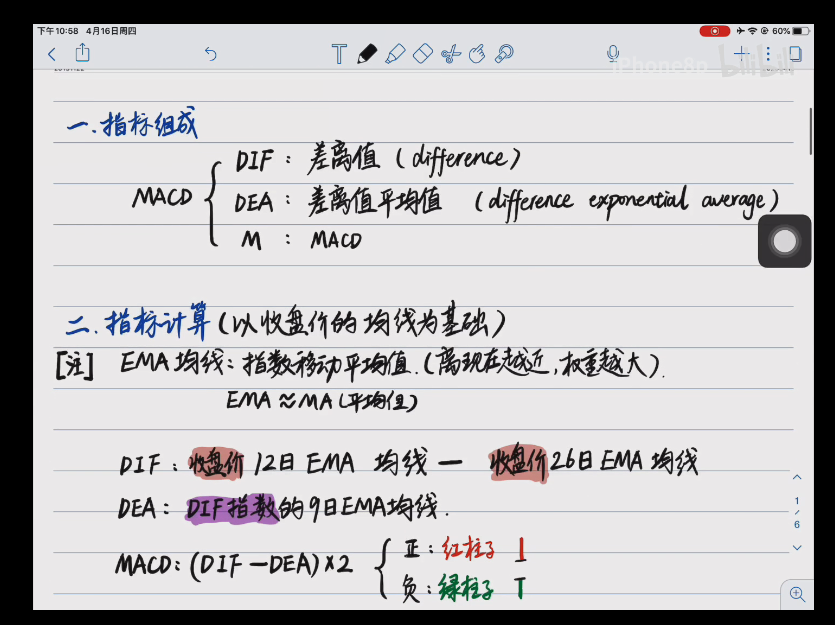 下午10:58 4月16日周四
60%
iPhone8p bilibili
一.指标组成
MACD
DIF: 差离值 (difference)
DEA: 差离值平均值 (difference exponential average)
M : MACD
二.指标计算(以收盘价的均线为基础)
[注] EMA均线:指数移动平均值.(离现在越近,权重越大).
EMA≈MA(平均值)
DIF:收盘价12日EMA 均线 — 收盘价26日EMA均线
DEA:DIF指数的9日EMA均线.
MACD:(DIF—DEA)×2
正:红柱子
负:绿柱子
1/6